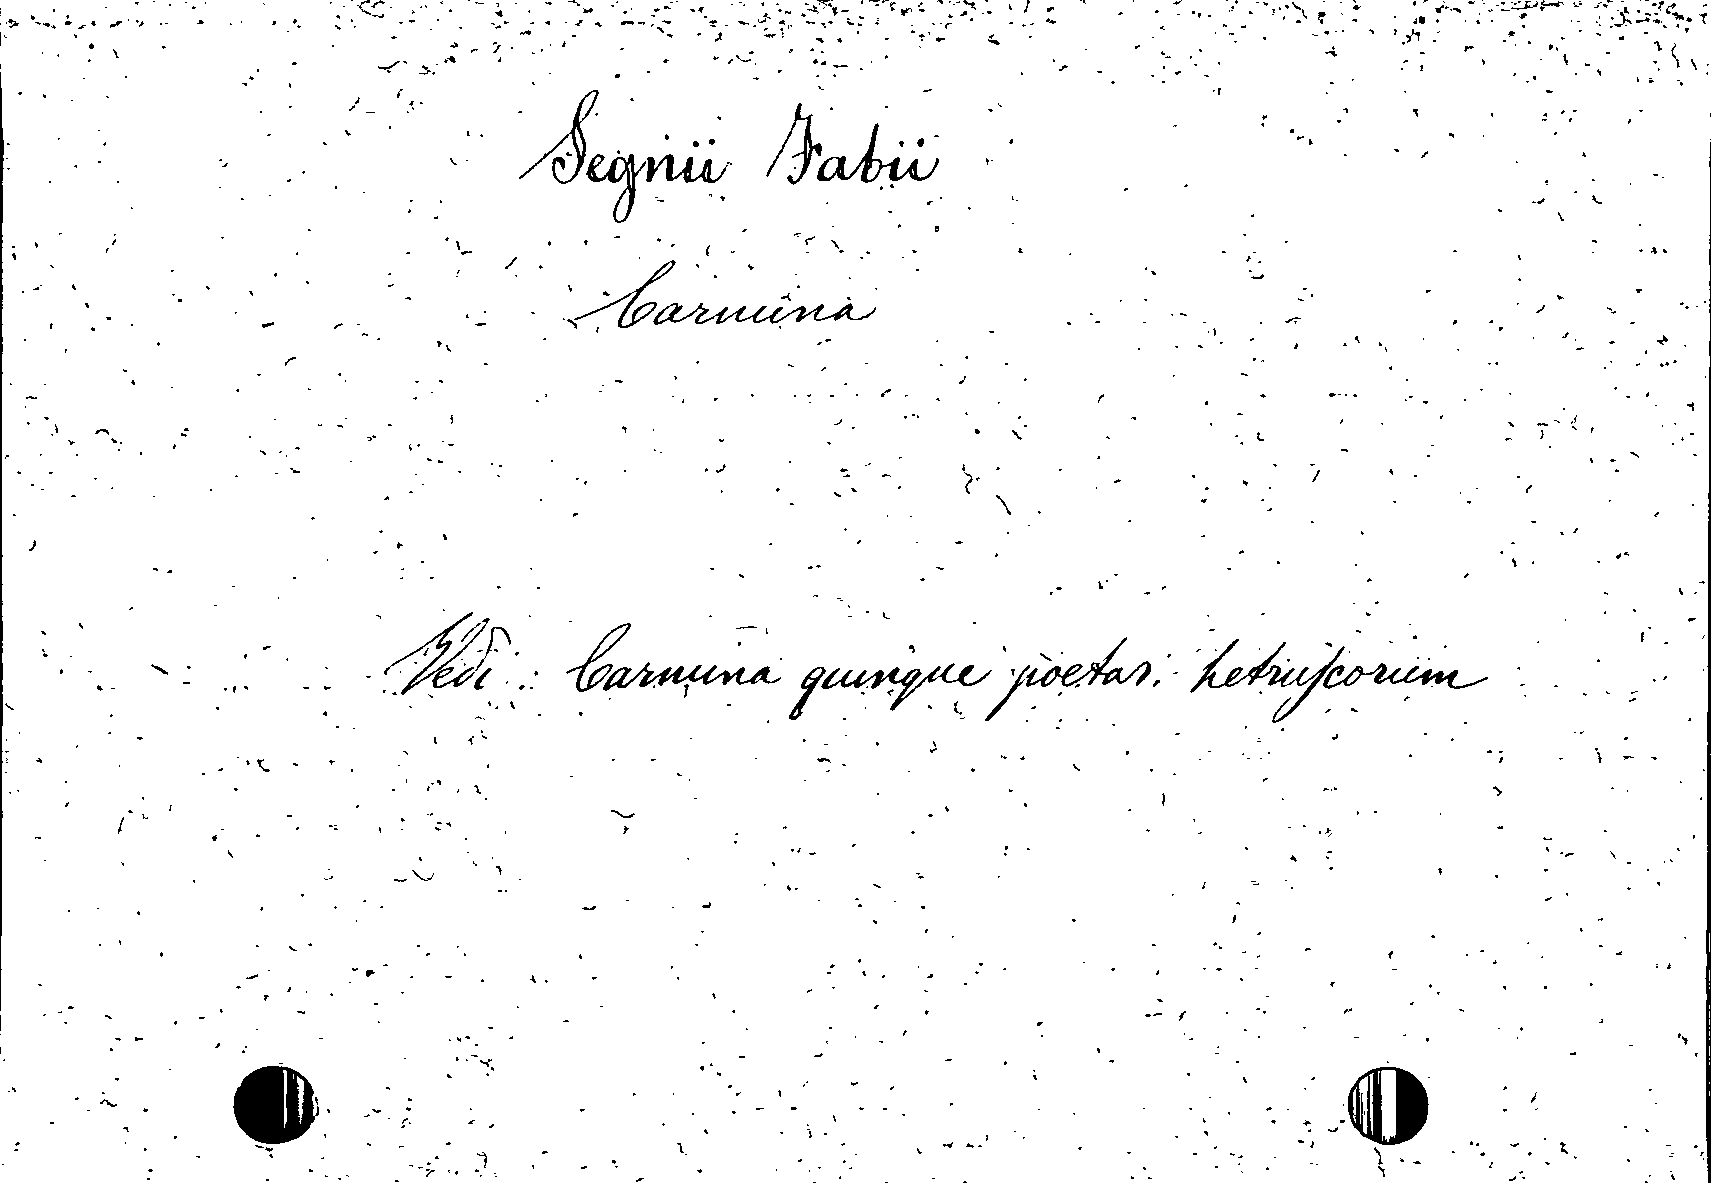 Segnii Fabii
Carmina
Vedi: Carmina quinque poetar. hetruscorum